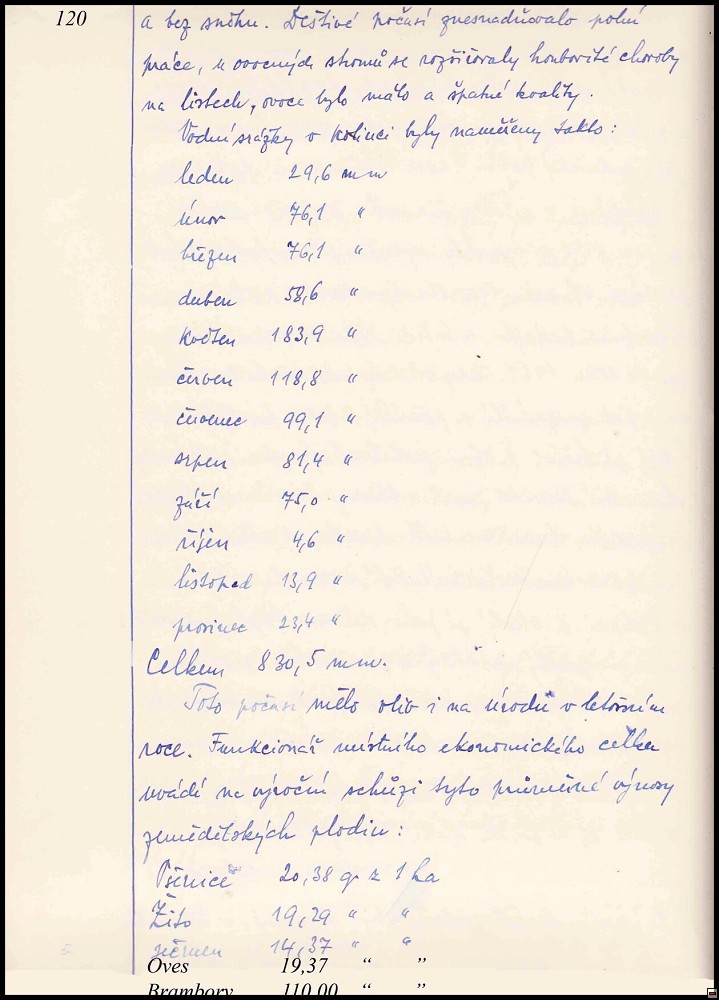 120
a bez sněhu. Deštivé počasí znesnadňovalo polní
práce, u ovocných stromů se rozšiřovaly houbovité choroby
na listech, ovoce bylo málo a špatné kvality.
Vodní srážky v Kolinci byly naměřeny takto:
leden 29,6 mm
únor 76,1 "
březen 76,1 "
duben 58,6 "
květen 183,9 "
červen 118,8 "
červenec 99,1 "
srpen 81,4 "
září 75,0 "
říjen 4,6 "
listopad 13,9 "
prosinec 23,4 "
Celkem 830,5 mm.
Toto počasí mělo vliv i na úrodu v letošním
roce. Funkcionář místního ekonomického celku
uvádí na výroční schůzi tyto průměrné výnosy
zemědělských plodin:
Pšenice 20,38 q z 1 ha
Žito 19,29 " "
ječmen 14,37 " "
Oves 19,37 “ ”
Brambory 110,00 “ ”